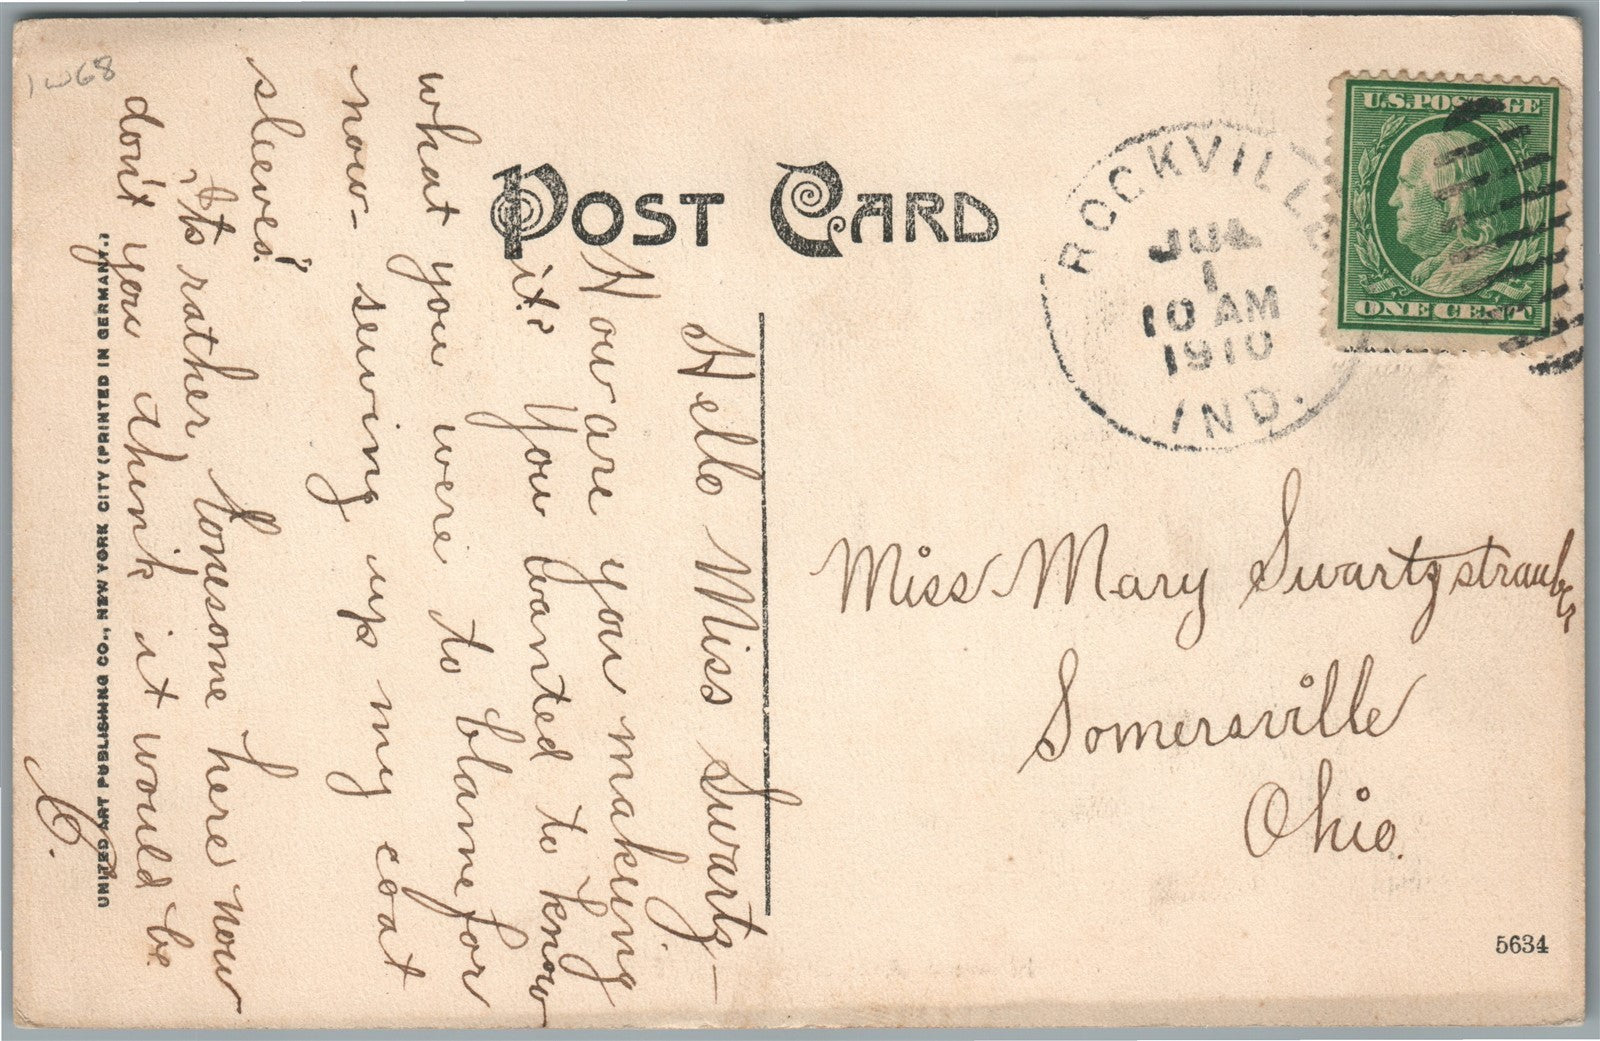 1W68
POST CARD
U.S. POSTAGE
ONE CENT
ROCKVILLE
1
10 AM
1910
IND.
Hello Miss Swartz-
How are you making
it? You wanted to know
what you were to blame for
now- sewing up my coat
sleeves?
Its rather lonesome here now
don't you think it would be
Miss Mary Swartzstrauber
Somersville
Ohio.
UNITED ART PUBLISHING CO., NEW YORK CITY (PRINTED IN GERMANY.)
5634